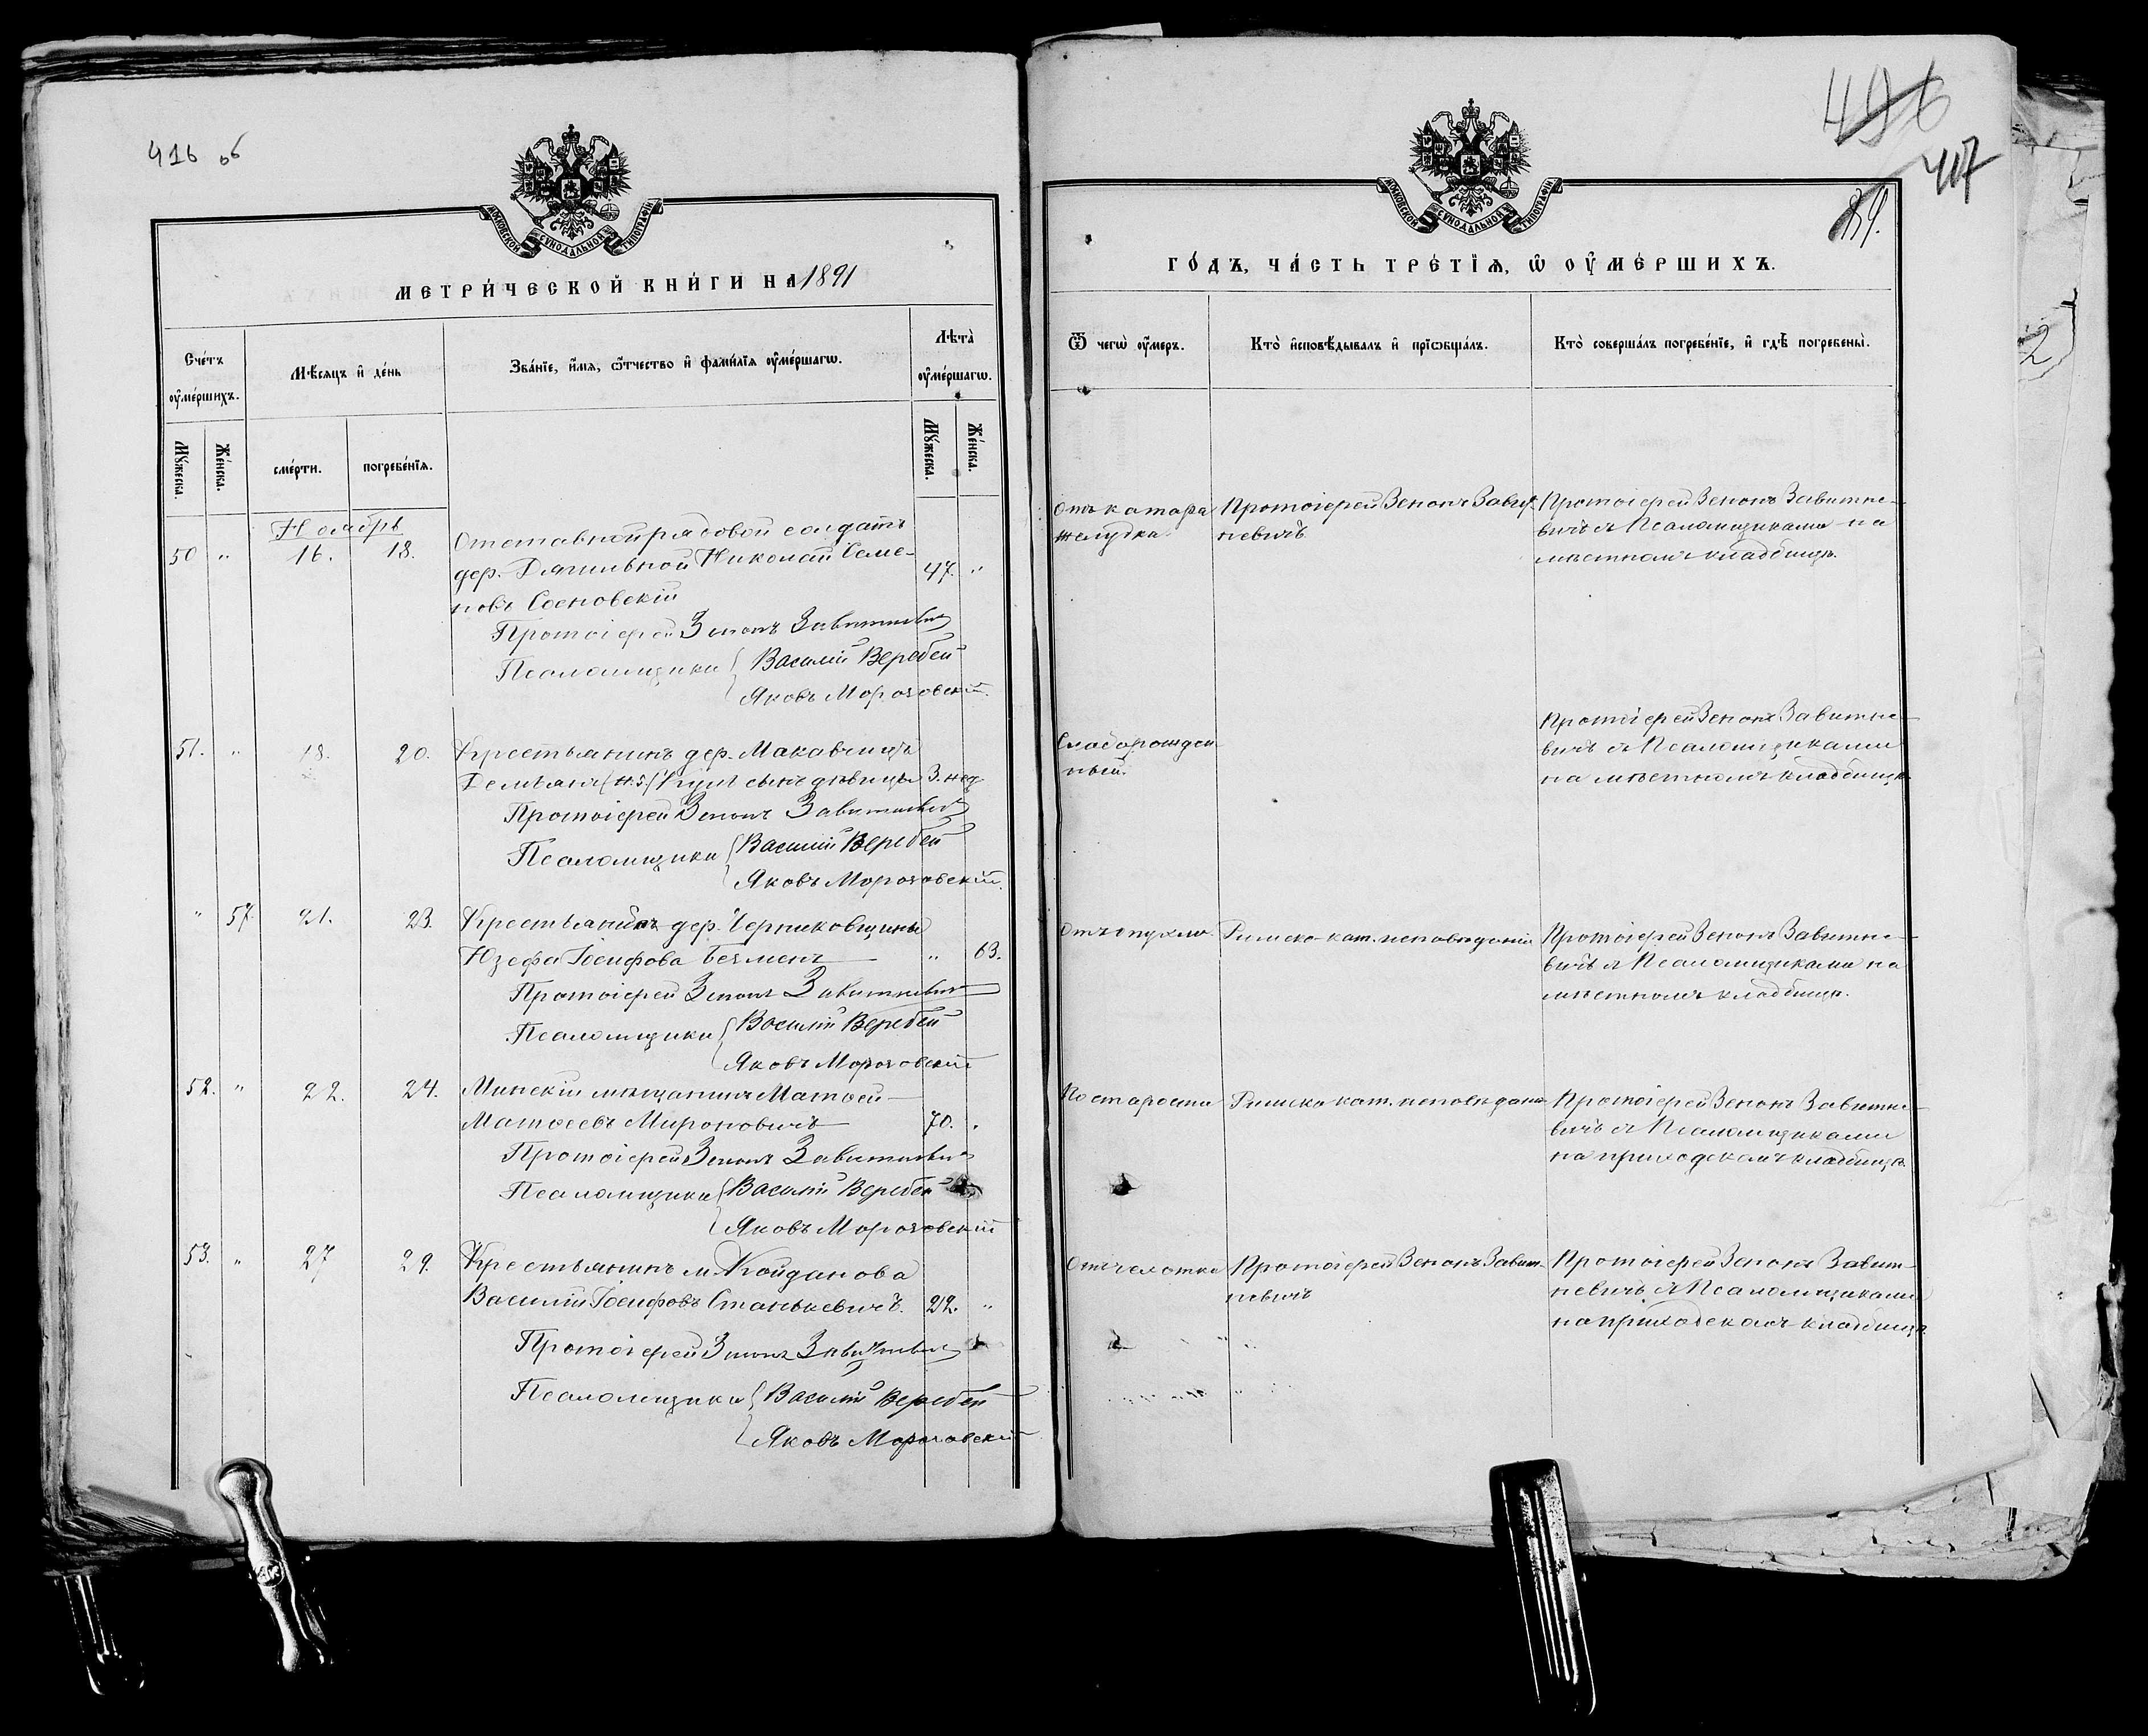 416 об
МОСКОВСКОЙ СѴНОДАЛЬНОЙ ТИПОГРАФІИ
МЕТРИ́ЧЕСКОЙ КНИ́ГИ НА 1891
Сче́тъ ᲂу҆ме́ршихъ.
Мѣ́сяцъ и҆ де́нь
Зва́нїе, и҆́мѧ, ѻ҆́тчество и҆ фами́лїѧ ᲂу҆ме́ршагѡ.
Лѣта̀ ᲂу҆ме́ршагѡ.
Мꙋ́жеска.
Же́нска.
сме́рти.
погребе́нїѧ.
Мꙋ́жеска.
Же́нска.
Ноябрь
50 " 16. 18. Отставной рядовой солдатъ
дер. Дягильной Николай Семе- 47. "
новъ Сосновскій
Протоіерей Зенонъ Завитневичъ
Псаломщики { Василій Веребей
Яковъ Морозовскій.
51. " 18. 20. Крестьянинъ дер. Макавчицъ
Демьянъ (н.з.) сынъ дѣвицы 3. нед.
Протоіерей Зенонъ Завитневичъ
Псаломщики { Василій Веребей
Яковъ Морозовскій.
" 57. 21. 23. дер. Черниковщины
Юзефа Іосифова Безменъ " 63.
Протоіерей Зенонъ Завитневичъ
Псаломщики { Василій Веребей
Яковъ Морозовскій
52. " 22. 24. Минскій мѣщанинъ Матѳей
Матѳеевъ Мироновичъ 70. "
Протоіерей Зенонъ Завитневичъ
Псаломщики { Василій Веребей
Яковъ Морозовскій
53. " 27 29. Крестьянинъ м. Койданова
Василій Іосифовъ Станькевичъ. 22. "
Протоіерей Зенонъ Завитневичъ
Псаломщики { Василій Веребей
Яковъ Морозовскій
417
МОСКОВСКОЙ СѴНОДАЛЬНОЙ ТИПОГРАФІИ
ГО́ДЪ, ЧА́СТЬ ТРЕ́ТЇѦ, Ѡ҆ ОУ҆МЕ́РШИХЪ.
Ѿ чегѡ̀ ᲂу҆́меръ.
Кто̀ и҆сповѣ́дывалъ и҆ прїѡбща́лъ.
Кто̀ соверша́лъ погребе́нїе, и҆ гдѣ̀ погребены̀.
Отъ катара Протоіерей Зенонъ Завит- Протоіерей Зенонъ Завитне-
желудка. невичъ вичъ съ Псаломщиками на
мѣстномъ кладбищѣ.
Протоіерей Зенонъ Завитне-
Слаборожден вичъ съ Псаломщиками
ный. на мѣстномъ кладбищѣ
Отъ опухли. Римско-кат. исповѣданія Протоіерей Зенонъ Завитне-
вичъ съ Псаломщиками на
мѣстномъ кладбищѣ.
По старости Римско-кат. исповѣданія Протоіерей Зенонъ Завитне-
вичъ съ Псаломщиками
на приходскомъ кладбищѣ.
Отъ чахотки Протоіерей Зенонъ Завит- Протоіерей Зенонъ Завит-
невичъ невичъ съ Псаломщиками
на приходскомъ кладбищѣ
2